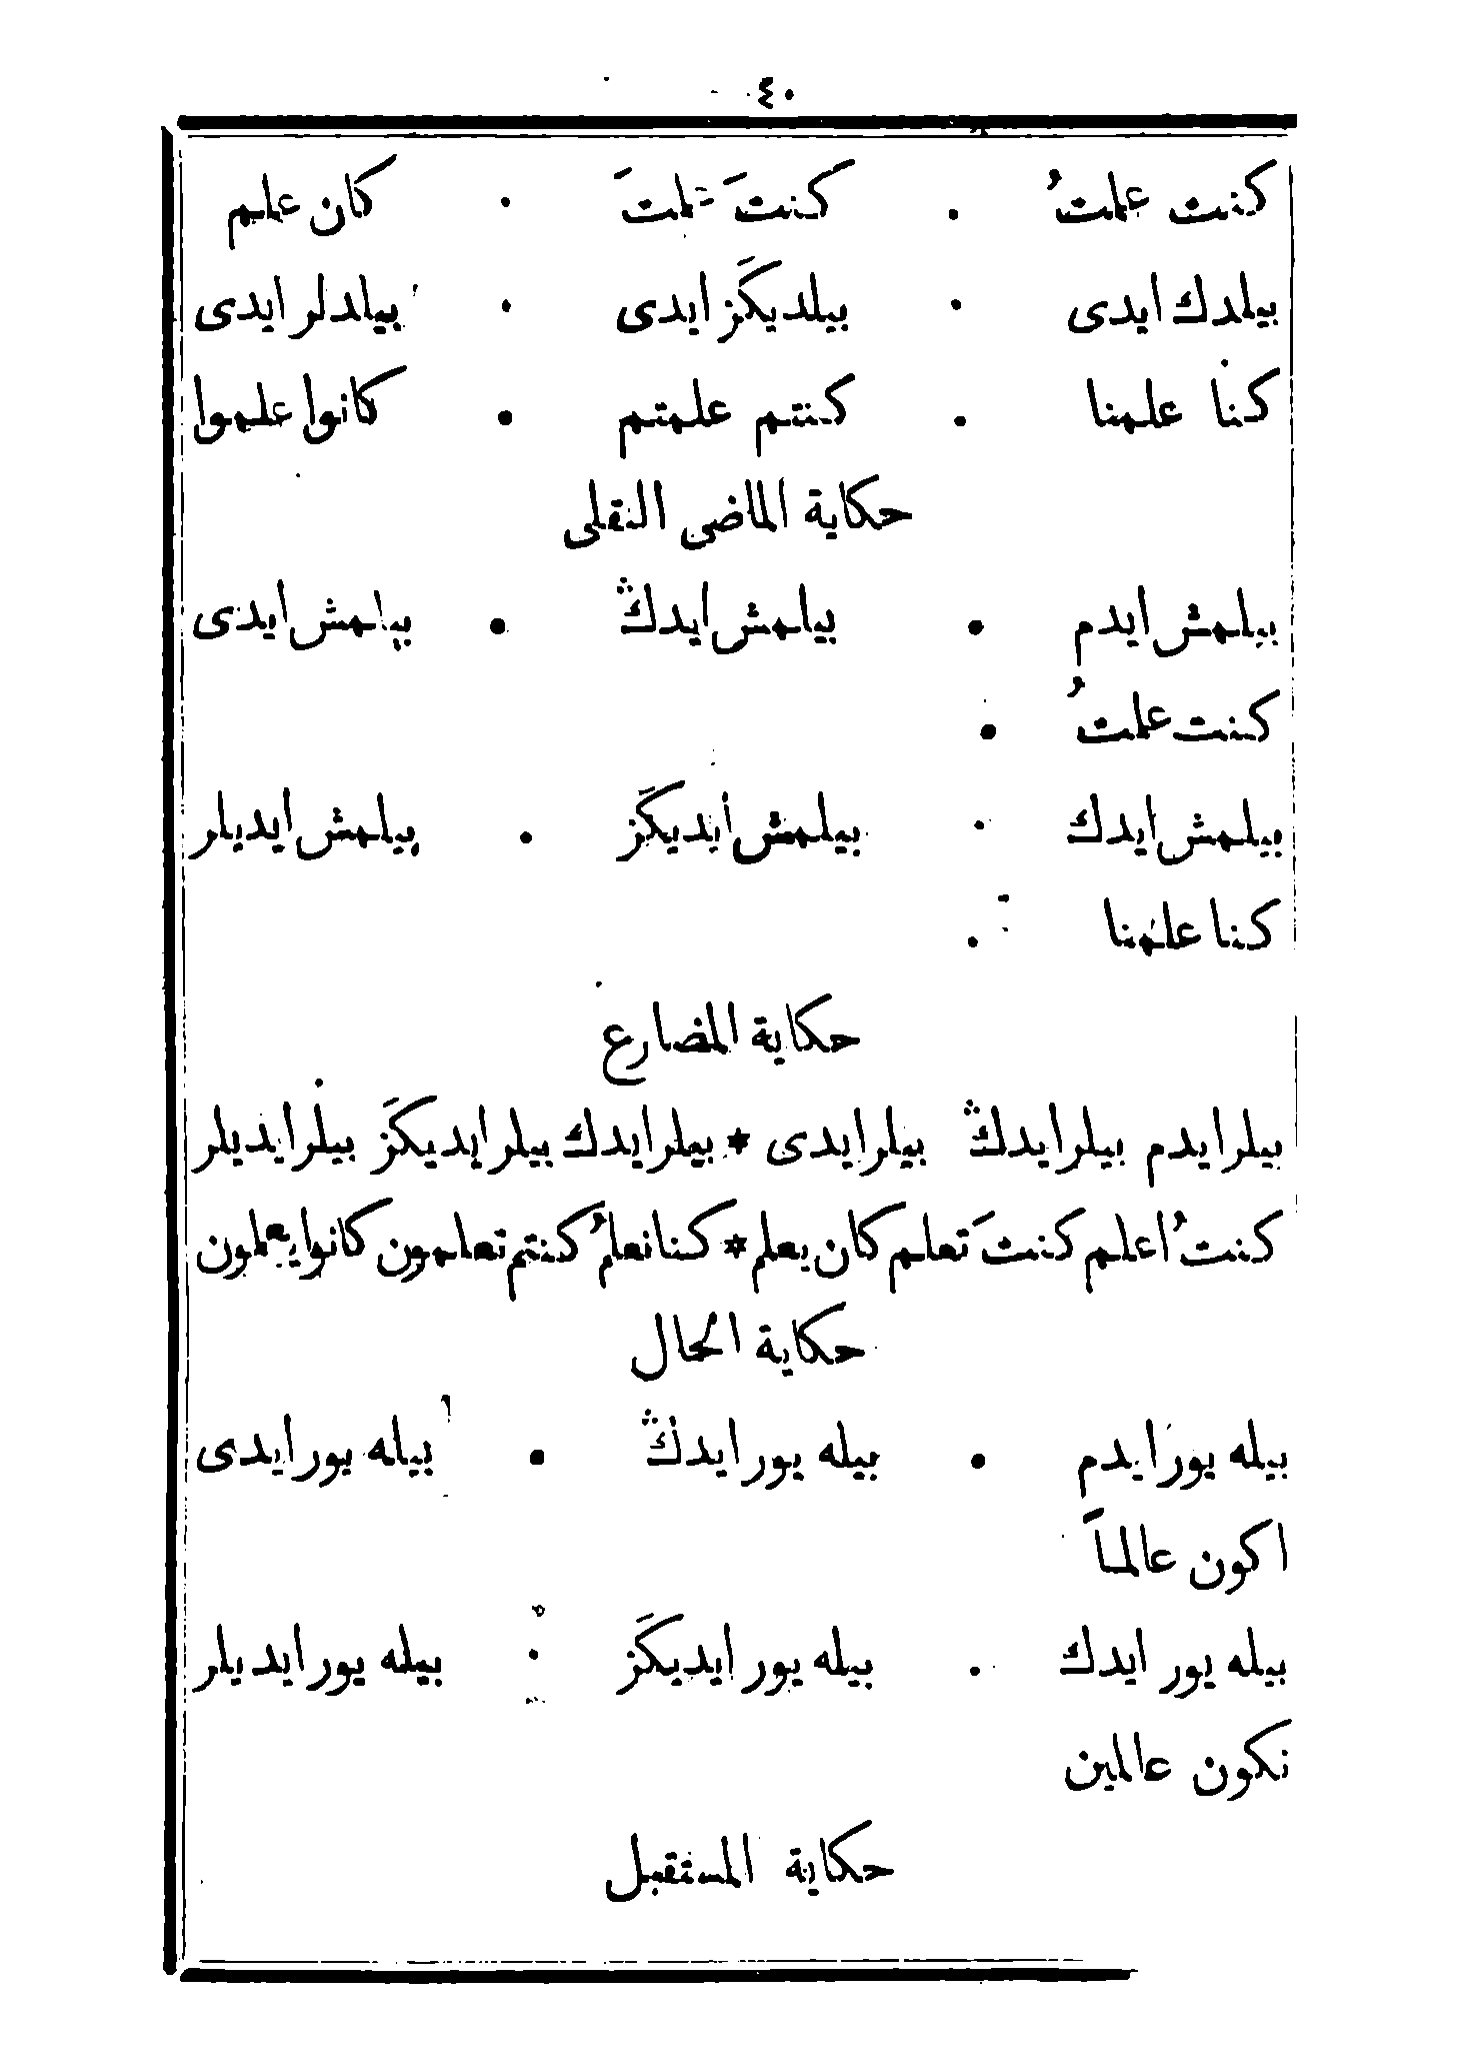 ٤٠
كنت علمتُ ٠ كنتَ علمتَ ٠ كان علم
بيلدك ايدى ٠ بيلديكَز ايدى ٠ بيلدلر ايدى
كنا علمنا ٠ كنتم علمتم ٠ كانوا علموا
حكاية الماضى النقلى
بيلمش ايدم ٠ بيلمش ايدڭ ٠ بيلمش ايدى
كنت علمتُ ٠
بيلمش ايدك ٠ بيلمش ايديكَز ٠ بيلمش ايديلر
كنا علمنا ٠
حكاية المضارع
بيلر ايدم بيلر ايدڭ بيلر ايدى * بيلر ايدك بيلر ايديكَز بيلر ايديلر
كنتُ اعلم كنتَ تعلم كان يعلم * كنا نعلمُ كنتم تعلمون كانوا يعلمون
حكاية الحال
بيله يور ايدم ٠ بيله يور ايدڭ ٠ بيله يور ايدى
اكون عالماً
بيله يور ايدك ٠ بيله يور ايديكَز ٠ بيله يور ايديلر
نكون عالمين
حكاية المستقبل